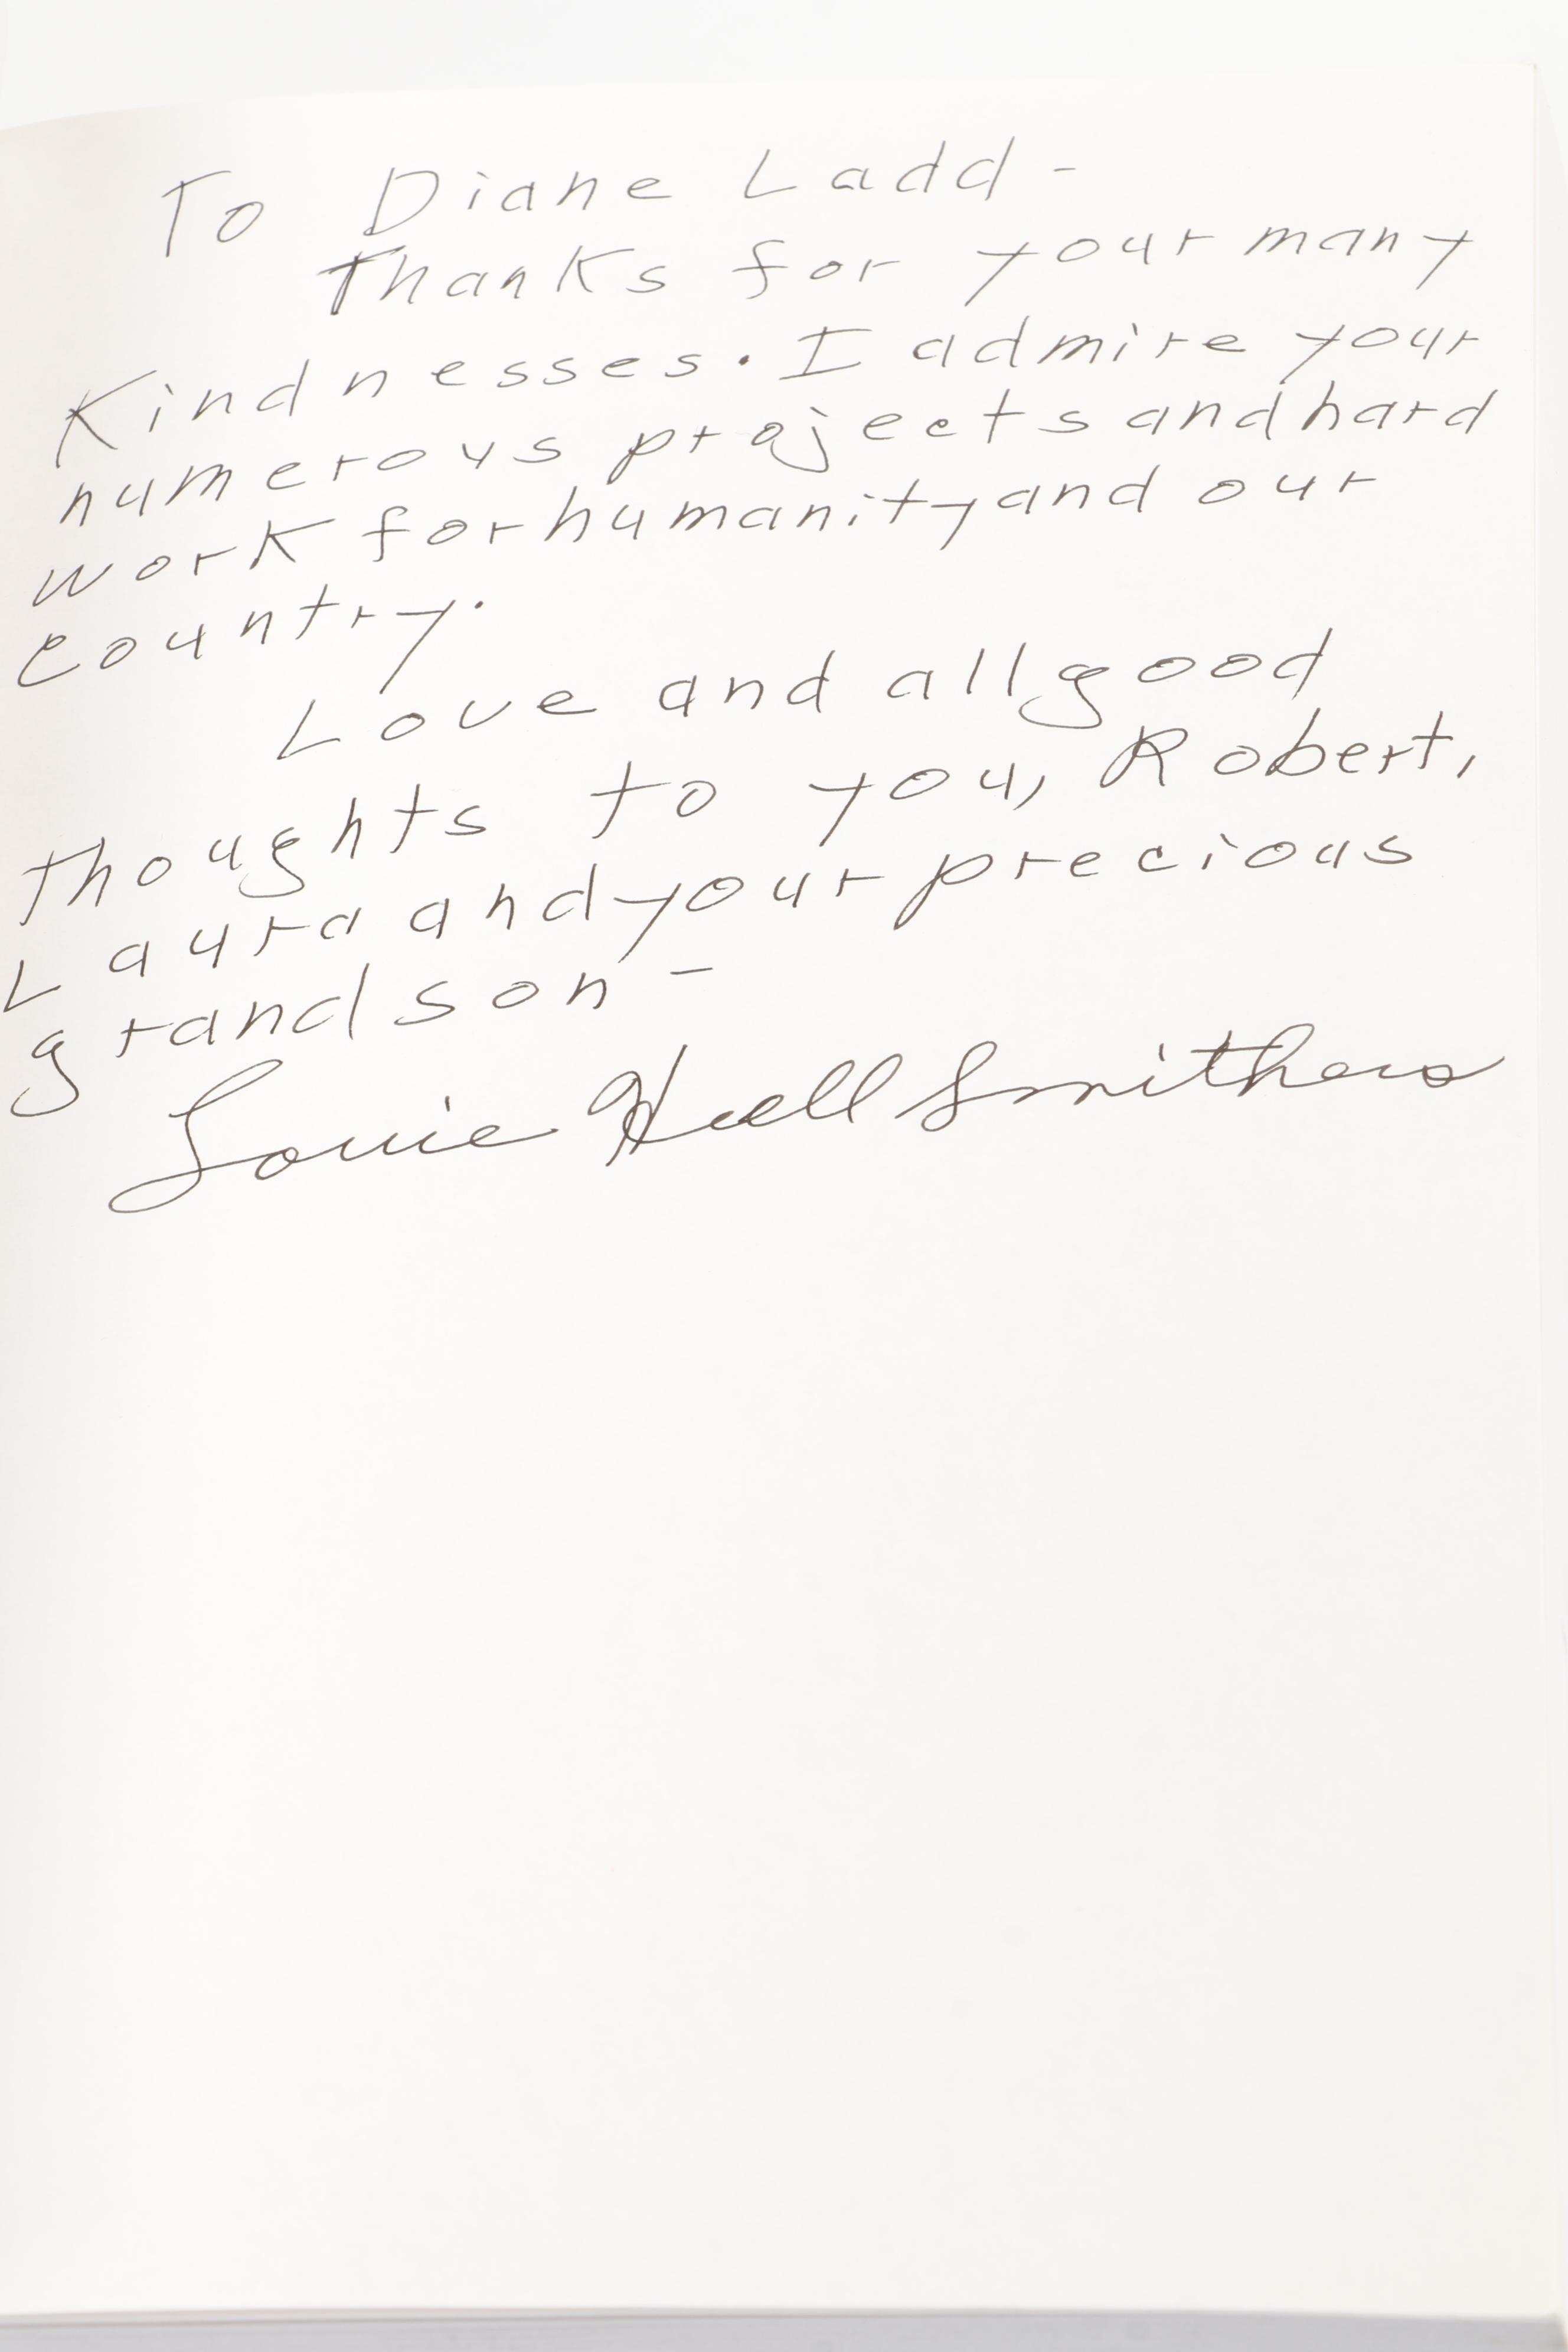 To Diane Ladd -
Thanks for your many
Kindnesses. I admire your
numerous projects and hard
work for humanity and our
country.
Love and all good
thoughts to you, Robert,
Laura and your precious
grandson -
Smithers